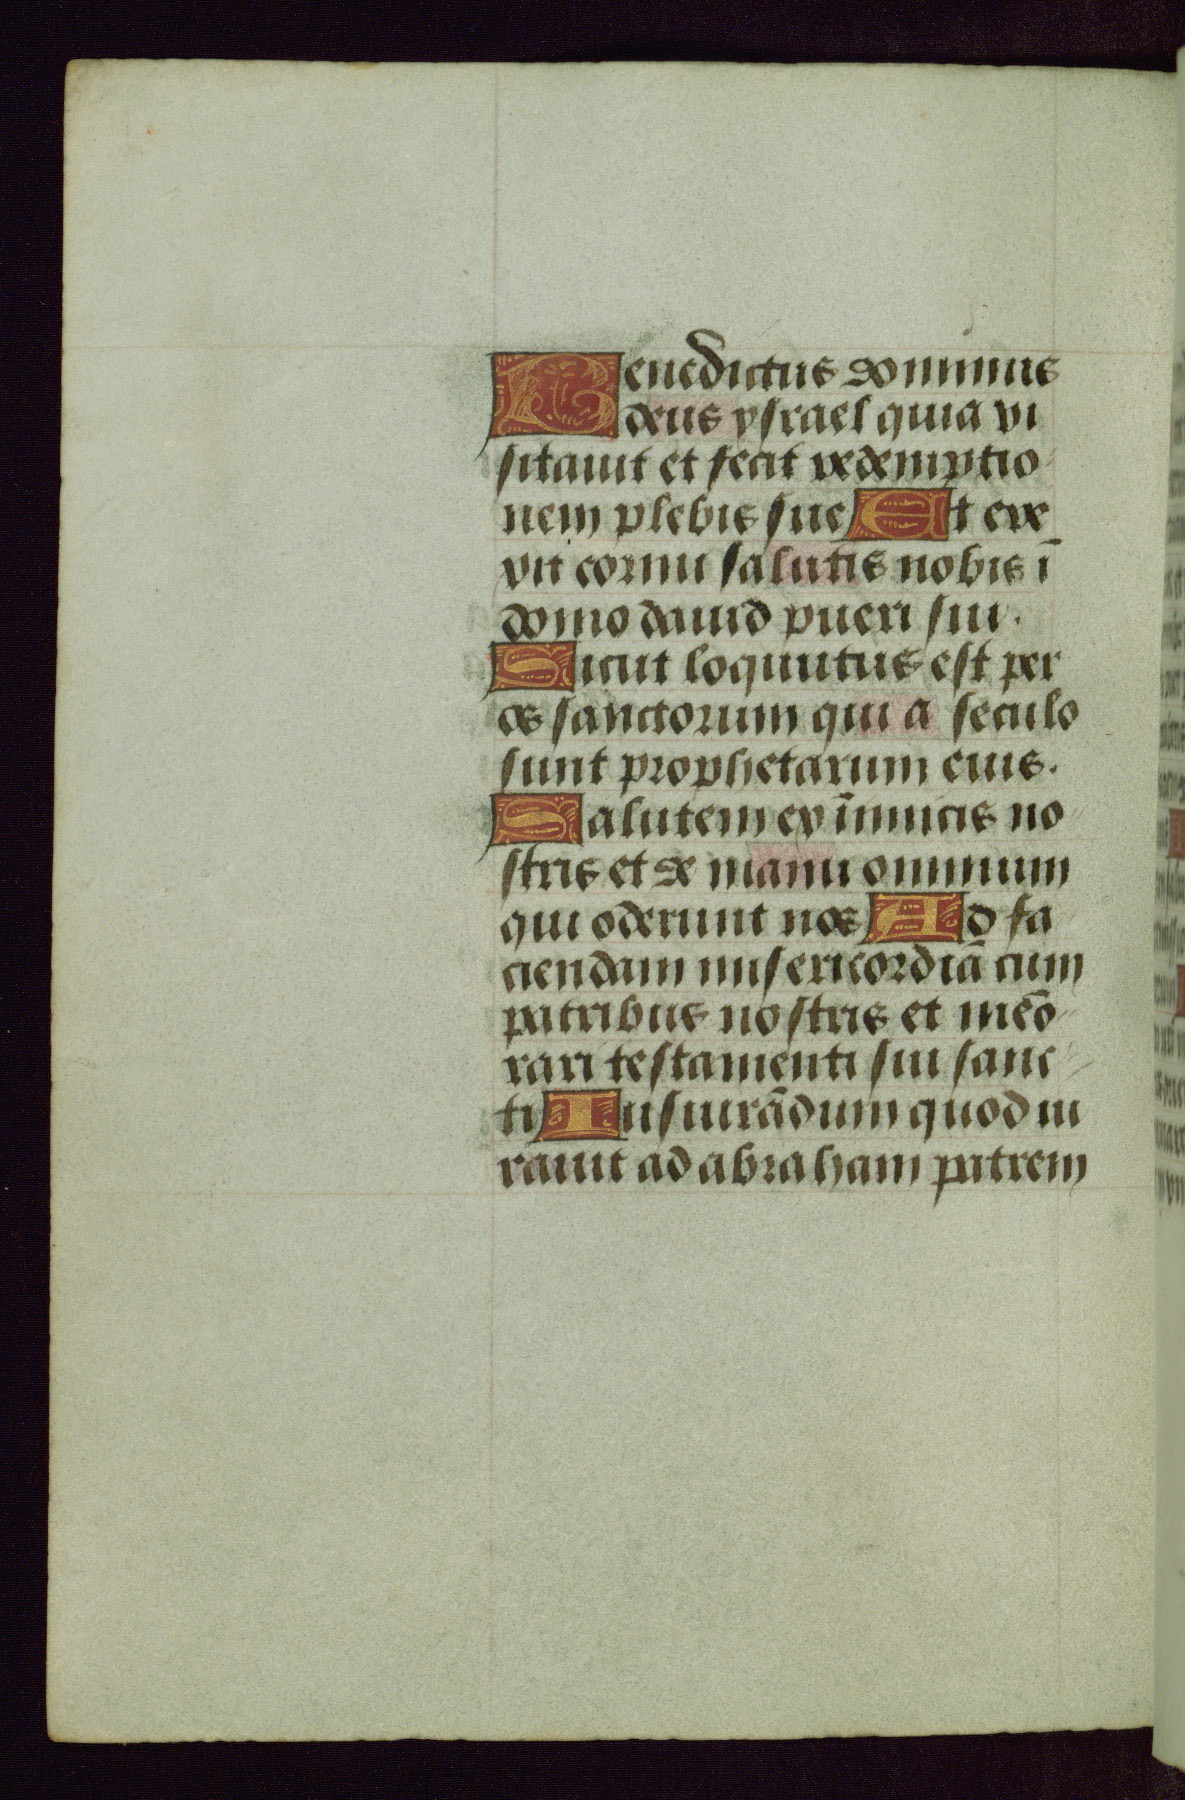 Benedictus dominus
deus ysrael quia vi
sitauit et fecit redemptio
nem plebis sue Et ere
xit cornu salutis nobis ī
domo dauid pueri sui.
Sicut loquutus est per
os sanctorum qui a seculo
sunt prophetarum eius.
Salutem ex īimicis no
stris et de manu omnium
qui oderunt nos Ad fa
ciendam misericordiā cum
patribus nostris et mēo
rari testamenti sui sanc
ti Iusiurādum quod iu
rauit ad abraham patrem